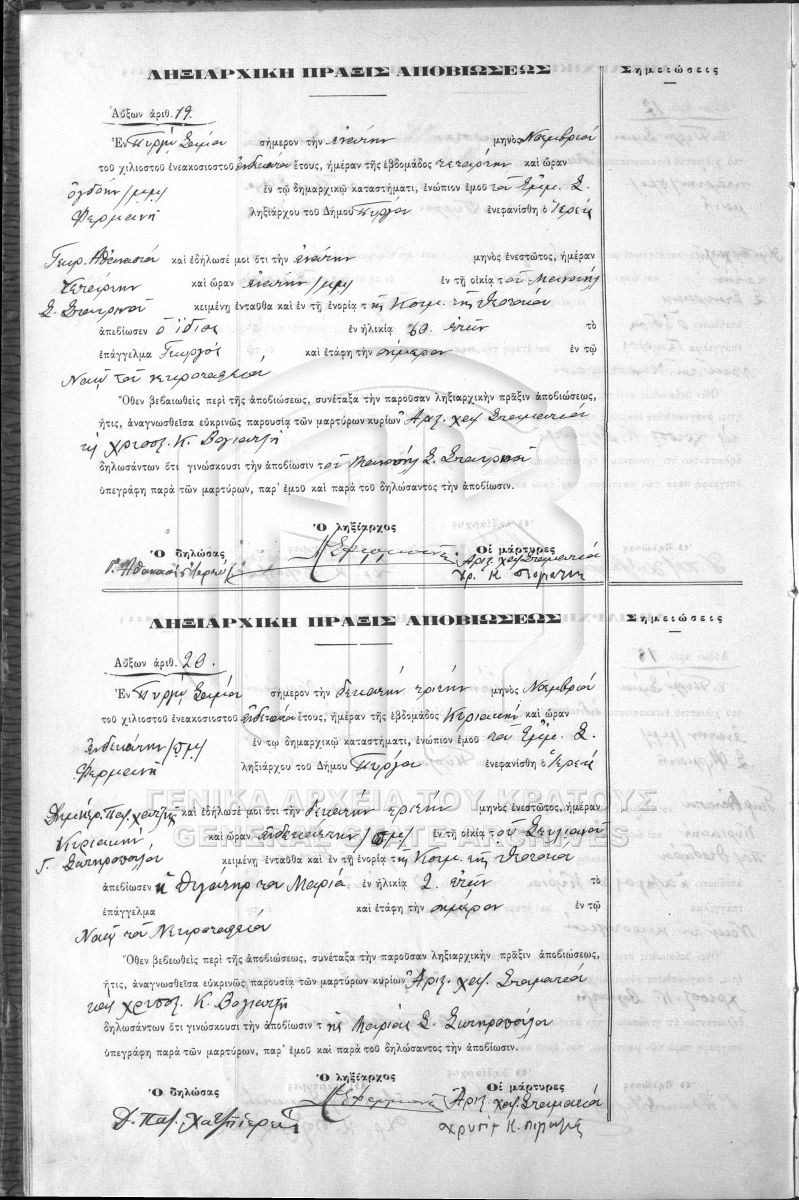 ΛΗΞΙΑΡΧΙΚΗ ΠΡΑΞΙΣ ΑΠΟΒΙΩΣΕΩΣ
Σημειώσεις
Αὔξων ἀριθ. 19.
Ἐν Πύργῳ Σάμου σήμερον τὴν ἐνάτην μηνὸς Νοεμβρίου
τοῦ χιλιοστοῦ ἐνεακοσιοστοῦ ἑνδεκάτου ἔτους, ἡμέραν τῆς ἑβδομάδος τετάρτην καὶ ὥραν
ὀγδόην /μμ/ ἐν τῷ δημαρχικῷ καταστήματι, ἐνώπιον ἐμοῦ τοῦ Ἐμμ. Σ.
Φερμανῆ ληξιάρχου τοῦ Δήμου Πύργου ἐνεφανίσθη ὁ Ἱερεὺς
Γεωρ. Ἀθανασίου καὶ ἐδήλωσέ μοι ὅτι τὴν ἐνάτην μηνὸς ἐνεστῶτος, ἡμέραν
Τετάρτην καὶ ὥραν ἐνάτην /μμ/ ἐν τῇ οἰκίᾳ τοῦ Μανουὴλ
Σ. Σταυρινοῦ κειμένῃ ἐνταῦθα καὶ ἐν τῇ ἐνορίᾳ τῆς Κοιμ. τῆς Θεοτόκου
ἀπεβίωσεν ὁ ἴδιος ἐν ἡλικίᾳ 60 ἐτῶν τὸ
ἐπάγγελμα Γεωργὸς καὶ ἐτάφη τὴν σήμερον ἐν τῷ
Ναῷ τοῦ νεκροταφείου
Ὅθεν βεβαιωθεὶς περὶ τῆς ἀποβιώσεως, συνέταξα τὴν παροῦσαν ληξιαρχικὴν πρᾶξιν ἀποβιώσεως,
ἥτις, ἀναγνωσθεῖσα εὐκρινῶς παρουσίᾳ τῶν μαρτύρων κυρίων Ἀριζ. χατζ. Σταματίου
κ Χρυσ. Κ. Βογιατζῆ
δηλωσάντων ὅτι γινώσκουσι τὴν ἀποβίωσιν τοῦ Μανουὴλ Σ. Σταυρινοῦ
ὑπεγράφη παρὰ τῶν μαρτύρων, παρ' ἐμοῦ καὶ παρὰ τοῦ δηλώσαντος τὴν ἀποβίωσιν.
Ὁ ληξίαρχος
Ὁ δηλώσας
Οἱ μάρτυρες
Γ. Ἀθανασίου Ἱερεὺς
Ἐ Σ Φερμανῆς
Ἀριζ. χατζ. Σταματίου
Χρ. Κ
ΛΗΞΙΑΡΧΙΚΗ ΠΡΑΞΙΣ ΑΠΟΒΙΩΣΕΩΣ
Σημειώσεις
Αὔξων ἀριθ. 20.
Ἐν Πύργῳ Σάμου σήμερον τὴν δεκάτην τρίτην μηνὸς Νοεμβρίου
τοῦ χιλιοστοῦ ἐνεακοσιοστοῦ ἑνδεκάτου ἔτους, ἡμέραν τῆς ἑβδομάδος Κυριακὴν καὶ ὥραν
ἑνδεκάτην /πμ/ ἐν τῷ δημαρχικῷ καταστήματι, ἐνώπιον ἐμοῦ τοῦ Ἐμμ. Σ.
Φερμανῆ ληξιάρχου τοῦ Δήμου Πύργου ἐνεφανίσθη ὁ Ἱερεὺς
Δημήτρ. Παπ. Χατζῆς καὶ ἐδήλωσέ μοι ὅτι τὴν δεκάτην τρίτην μηνὸς ἐνεστῶτος, ἡμέραν
Κυριακὴν καὶ ὥραν ἑνδεκάτην /πμ/ ἐν τῇ οἰκίᾳ τοῦ Στυλιανοῦ
Γ. Σωτηροπούλου κειμένῃ ἐνταῦθα καὶ ἐν τῇ ἐνορίᾳ τῆς Κοιμ. τῆς Θεοτόκου
ἀπεβίωσεν ἡ θυγάτηρ του Μαρία ἐν ἡλικίᾳ 2 ἐτῶν τὸ
ἐπάγγελμα καὶ ἐτάφη τὴν σήμερον ἐν τῷ
Ναῷ τοῦ Νεκροταφείου
Ὅθεν βεβαιωθεὶς περὶ τῆς ἀποβιώσεως, συνέταξα τὴν παροῦσαν ληξιαρχικὴν πρᾶξιν ἀποβιώσεως,
ἥτις, ἀναγνωσθεῖσα εὐκρινῶς παρουσίᾳ τῶν μαρτύρων κυρίων Ἀριζ. χατζ. Σταματίου
καὶ Χρυσ. Κ. Βογιατζῆ
δηλωσάντων ὅτι γινώσκουσι τὴν ἀποβίωσιν τῆς Μαρίας Σ. Σωτηροπούλου
ὑπεγράφη παρὰ τῶν μαρτύρων, παρ' ἐμοῦ καὶ παρὰ τοῦ δηλώσαντος τὴν ἀποβίωσιν.
Ὁ ληξίαρχος
Ὁ δηλώσας
Οἱ μάρτυρες
Δ. Παπ.
Ἐ Σ Φερμανῆς
Ἀριζ. χατζ. Σταματίου
Κ.
ΓΕΝΙΚΑ ΑΡΧΕΙΑ ΤΟΥ ΚΡΑΤΟΥΣ
GENERAL STATE ARCHIVES